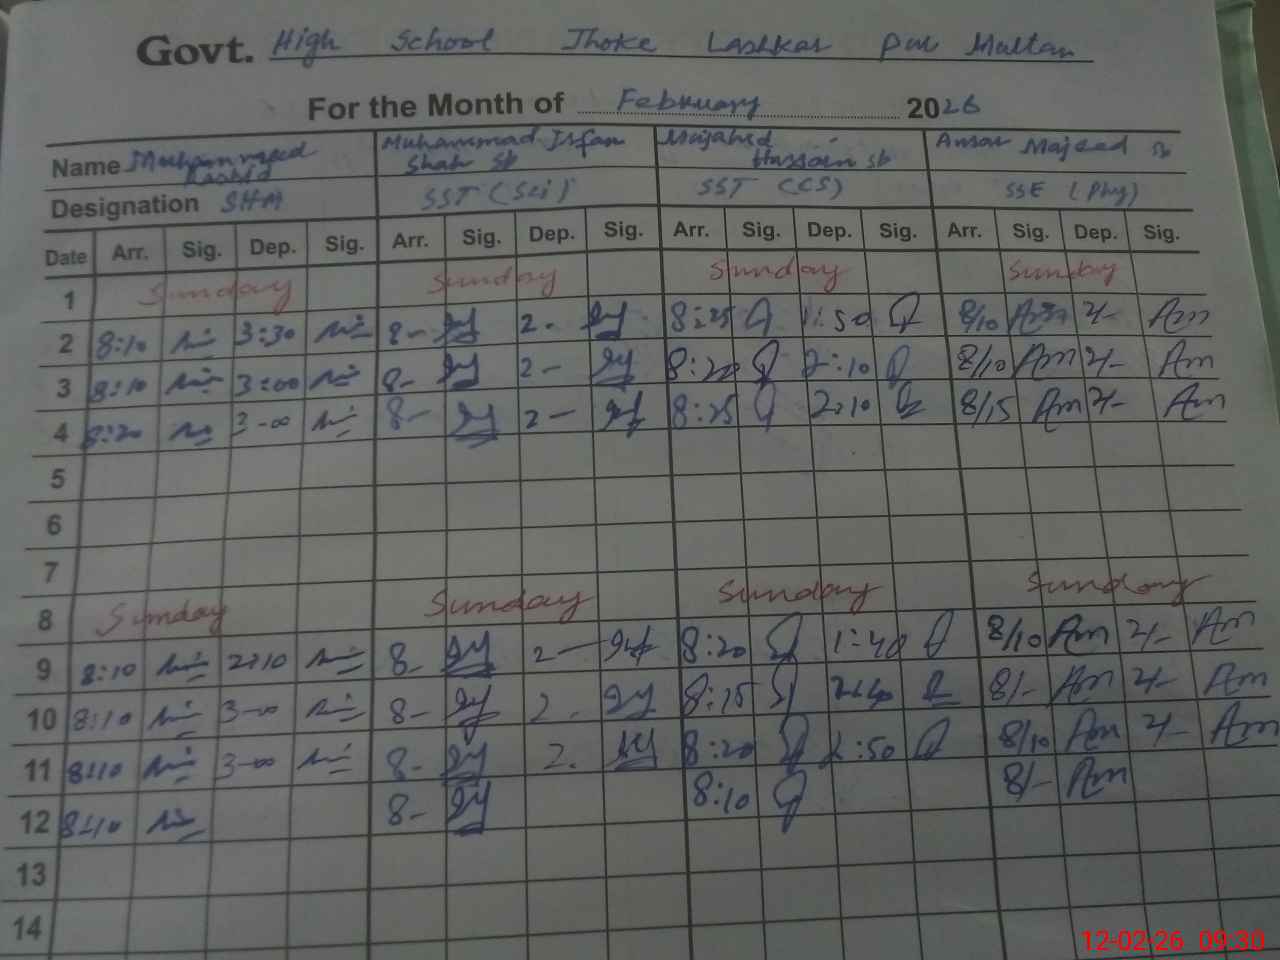 Govt. High School Jhoke Lashkar Pur Multan
For the Month of February 2026
Name Muhammad Rashid Muhammad Irfan Shah Sb Mujahid Hussain Sb Ansar Majeed Sb
Designation SHM SST (Sci) SST (CS) SSE (Phy)
Date Arr. Sig. Dep. Sig. Arr. Sig. Dep. Sig. Arr. Sig. Dep. Sig. Arr. Sig. Dep. Sig.
1 Sunday Sunday Sunday Sunday
2 8:10 3:30 8- 2. 8:25 1:50 8/10 Am 2/- Am
3 8:10 3:00 8- 2- 8:20 2:10 8/10 Am 2/- Am
4 8:20 3-00 8- 2- 8:25 2:10 8/15 Am 2/- Am
5
6
7
8 Sunday Sunday Sunday Sunday
9 8:10 2:10 8- 2- 8:20 1:40 8/10 Am 2/- Am
10 8:10 3-00 8- 2. 8:15 8/- Am 2/- Am
11 8:10 3-00 8- 2. 8:20 8/10 Am 2/- Am
12 8:10 8- 8:10 8/- Am
13
14
12-02-26 09:30